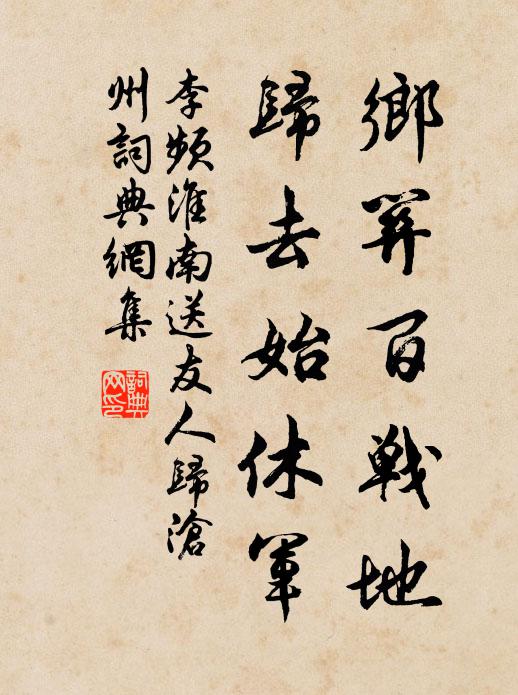 鄉關百戰地
歸去始休軍
李頻淮南送友人歸滄
州詞典網集
詞典
网印